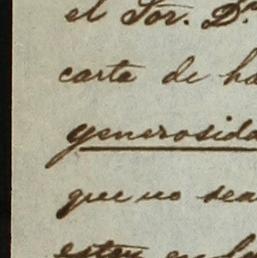 el Sor. D.
carta de ha
generosida
que no sea
estoy en la